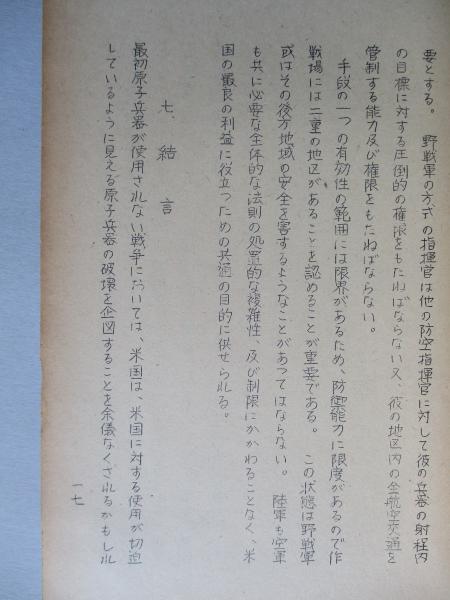 要とする。　野戦軍の方式の指揮官は他の防空指揮官に対して彼の兵器の射程内
の目標に対する圧倒的の権限をもたねばならない又、彼の地区内の全航空交通を
管制する能力及び権限をもたねばならない。
手段の一つの有効性の範囲には限界があるため、防御能力に限度があるので作
戦場には二重の地区があることを認めることが重要である。　この状態は野戦軍
或はその後方地域の安全を害するようなことがあつてはならない。　陸軍も空軍
も共に必要な全体的な法則の処置的な複雑性、及び制限にかかわることなく、米
国の最良の利益に役立つための共通の目的に供せられる。
七、結言
最初原子兵器が使用されない戦争においては、米国は、米国に対する使用が切迫
しているように見える原子兵器の破壊を企図することを余儀なくされるかもしれ
一七